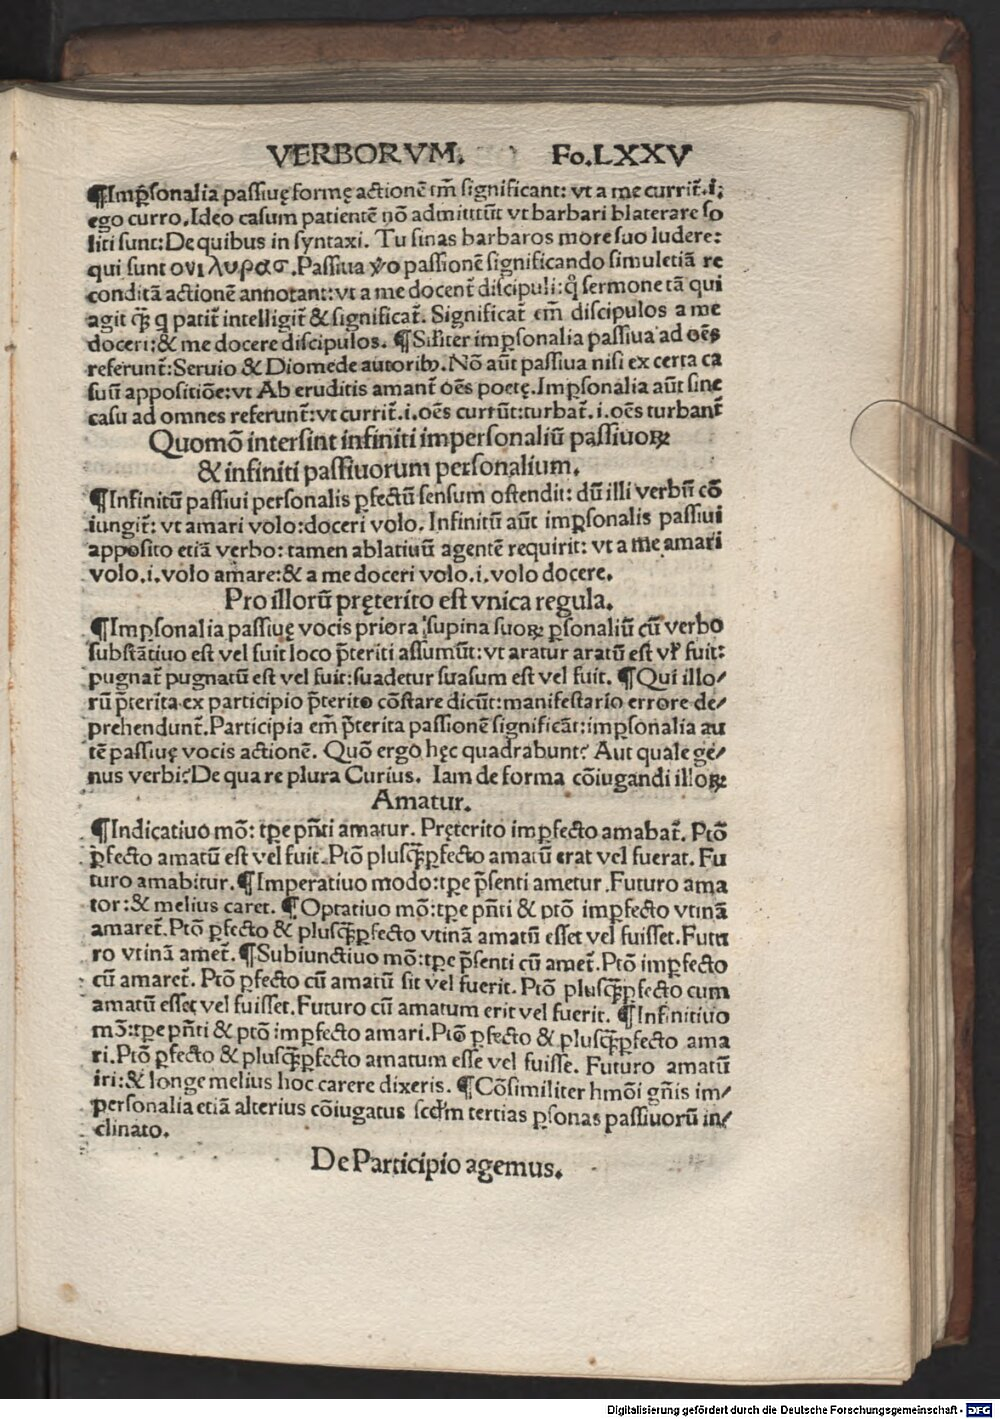 VERBORVM. Fo.LXXV
¶Imp̱sonalia passiuę formę actionē tm̄ significant: vt a me currit̄.i.
ego curro.Ideo casum patientē nō admittūt vt barbari blaterare so
liti sunt:De quibus in syntaxi. Tu sinas barbaros more suo ludere:
qui sunt ονι λυρασ.Passiua ꝟo passionē significando simul etiā re
conditā actionē annotant:vt a me docent̄ discipuli:q̊ sermone tā qui
agit q̄ꝫ q patit̄ intelligit̄ & significat̄. Significat̄ em̄ discipulos a me
doceri:& me docere discipulos. ¶Sil̄iter imp̱sonalia passiua ad oēs
referunt̄:Seruio & Diomede autoribꝰ.Nō aūt passiua nisi ex certa ca
suū appositiōe:vt Ab eruditis amant̄ oēs poetę.Imp̱sonalia aūt sine
casu ad omnes referunt̄:vt currit̄.i.oēs currūt:turbat̄.i.oēs turbant̄
Quomō intersint infiniti impersonaliū passiuoꝝ
& infiniti passiuorum personalium.
¶Infinitū passiui personalis p̱fectū sensum ostendit: dū illi verbū cō
iungit̄: vt amari volo:doceri volo. Infinitū aūt imp̱sonalis passiui
apposito etiā verbo: tamen ablatiuū agentē requirit: vt a me amari
volo.i.volo amare:& a me doceri volo.i.volo docere.
Pro illorū pręterito est vnica regula.
¶Imp̱sonalia passiuę vocis priora supina suoꝝ p̱sonaliū cū verbo
substātiuo est vel fuit loco p̄teriti assumūt: vt aratur aratū est vl̄ fuit:
pugnat̄ pugnatū est vel fuit:suadetur suasum est vel fuit. ¶Qui illo/
rū p̄terita ex participio p̄terito cōstare dicūt:manifestario errore de/
prehendunt̄.Participia em̄ p̄terita passionē significāt:imp̱sonalia au
tē passiuę vocis actionē. Quō ergo hęc quadrabunt? Aut quale ge/
nus verbi?De qua re plura Curius. Iam de forma cōiugandi illoꝝ
Amatur.
¶Indicatiuo mō: tp̱e pn̄ti amatur. Pręterito imp̱fecto amabat̄. Ptō
p̱fecto amatū est vel fuit.Ptō plusq̄ꝫp̱fecto amatū erat vel fuerat. Fu
turo amabitur.¶Imperatiuo modo:tp̱e p̄senti ametur.Futuro ama
tor:& melius caret. ¶Optatiuo mō:tp̱e pn̄ti & ptō imp̱fecto vtinā
amaret̄.Ptō p̱fecto & plusq̄ꝫp̱fecto vtinā amatū esset vel fuisset.Futu
ro vtinā amet̄.¶Subiunctiuo mō:tp̱e p̄senti cū amet̄.Ptō imp̱fecto
cū amaret̄. Ptō p̱fecto cū amatū sit vel fuerit. Ptō plusq̄ꝫp̱fecto cum
amatū esset vel fuisset.Futuro cū amatum erit vel fuerit. ¶Infinitiuo
mō:tp̱e pn̄ti & ptō imp̱fecto amari.Ptō p̱fecto & plusq̄ꝫp̱fecto ama
ri.Ptō p̱fecto & plusq̄ꝫp̱fecto amatum esse vel fuisse. Futuro amatū
iri:& longe melius hoc carere dixeris. ¶Cōsimiliter hmōi gn̄is im/
personalia etiā alterius cōiugatus scd̄m tertias p̱sonas passiuorū in/
clinato.
De Participio agemus.
Digitalisierung gefördert durch die Deutsche Forschungsgemeinschaft - DFG